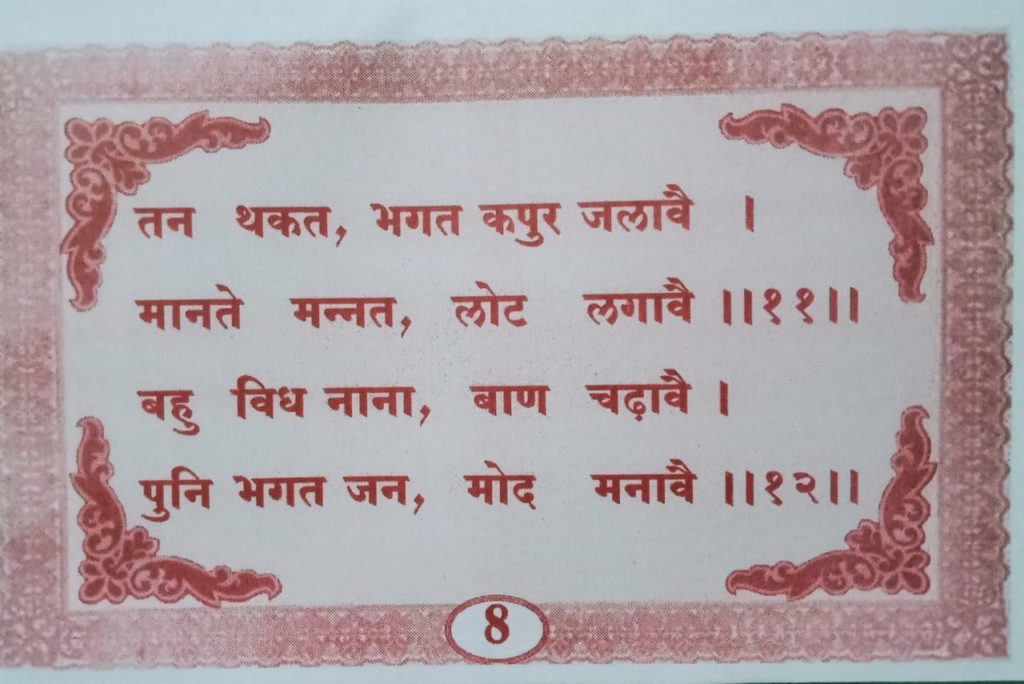 तन थकत, भगत कपुर जलावै ।
मानते मन्नत, लोट लगावै ।।११।।
बहु विध नाना, बाण चढ़ावै ।
पुनि भगत जन, मोद मनावै ।।१२।।
8